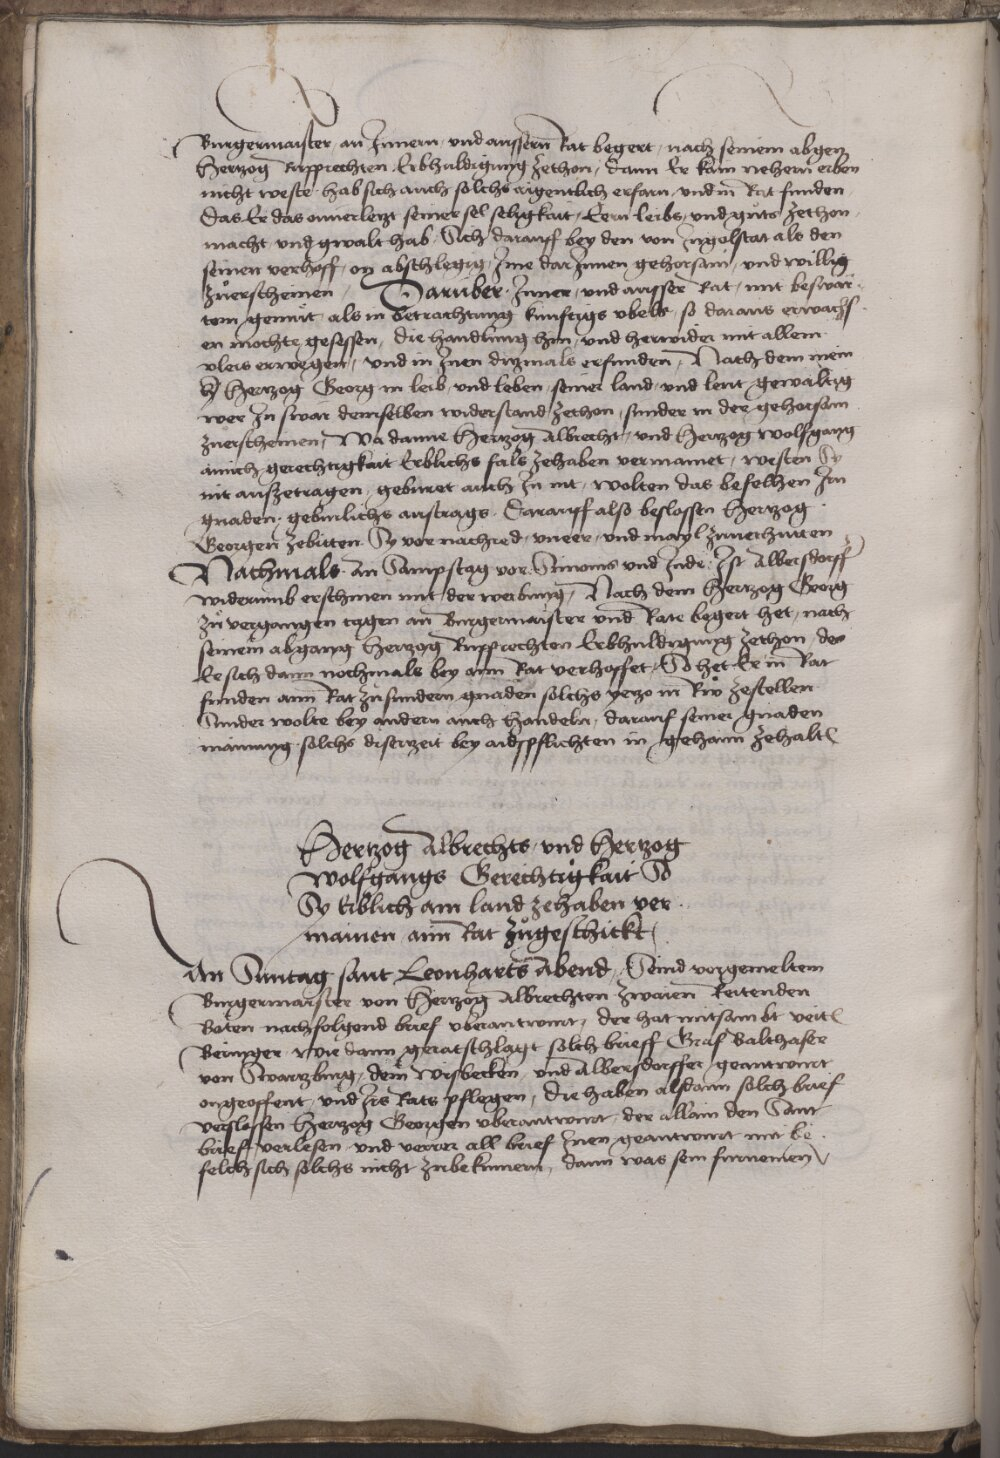 Burgermaister an Innern und aussern Rat begert nach seinem abgen
Hertzog Rupprechten Erbhuldigung zethon, dann Er kain nehern erben
nicht weste hab sich auch solchs aigentlich erfarn und in Rat funden
Das Er das onuerletzt seiner sel seligkait, Eern leibs, und guts zethon
macht und gwalt hab, Sich darauff bey den von Ingolstat als den
seinen verhoff, on abschlegig, Ime darInnen gehorsam, und willig
zůerscheinen, Darüber Inner, und ausser Rat, mit beswär
tem gemüt, als in betrachtung künftigs vbels, so daraus erwachs
en mochte gesessen, die handlung hin, und herwider mit allem
vleis erwegen, und in Inen ditzmals erfunden, Nach dem mein
h Hertzog Georg in leib, und leben, seiner land, und leut gewaltig
wer In swär demselben widerstand zethon, sunder in der gehorsam
zůerscheinen, Wa danne Hertzog Albrecht, und Hertzog Wolfgang
ainich gerechtigkait Erblichs fals zehaben vermainet, westen Sy
nit auszetragen, gebüret auch In nit, wolten das befelhen Irn
gnaden, gebürlichs austrags, Darauff also beslossen Hertzog
Georgen zebitten Sy vor nachred, uneer, und mayl zuuerhütten
Nachmals An Sampstag vor Simonis und Jude, Ist Albersdorff
widerumb erschinen mit der werbung, Nach dem Hertzog Georg
zů vergangen tagen an Burgermaister und Rate begert het, nach
seinem abgang Hertzog Rupprechten Erbhuldigung zethon, des
Er sich dann nochmals bey aim Rat verhoffet, So het Er in Rat
funden aim Rat zu sundern gnaden solchs yetzo in Rů zestellen
Sunder wolte bey andern auch handeln, darauf seiner gnaden
mainung solchs diserzeit bey aidspflichten in gehaim zehalt

Hertzog Albrechts und Hertzog
Wolfgangs Gerechtigkait So
Sy Erblich am land zehaben ver
mainen aim Rat zůgeschickt
An Suntag sant Leonharts Abend, Seind vorgemeltem
Burgermaister von Hertzog Albrechten zwaien Reitenden
Boten nachfolgend brief vberantwurt, der hat mitsambt veit
Beringer wie dann geratschlagt solch brieff Graf Balthaser
von Swartzburg, dem Wisbecken, und Albersdorffer geantwurt
ongeoffent, und Irs Rats pflegen, die haben alsdann solch brief
verslossen Hertzog Georgen vberantwurt, der allain den Sant
brieff verlesen und verrer all brief Inen geantwurt mit be
felch sich solchs nicht zubekümern, dann was sein furnemen